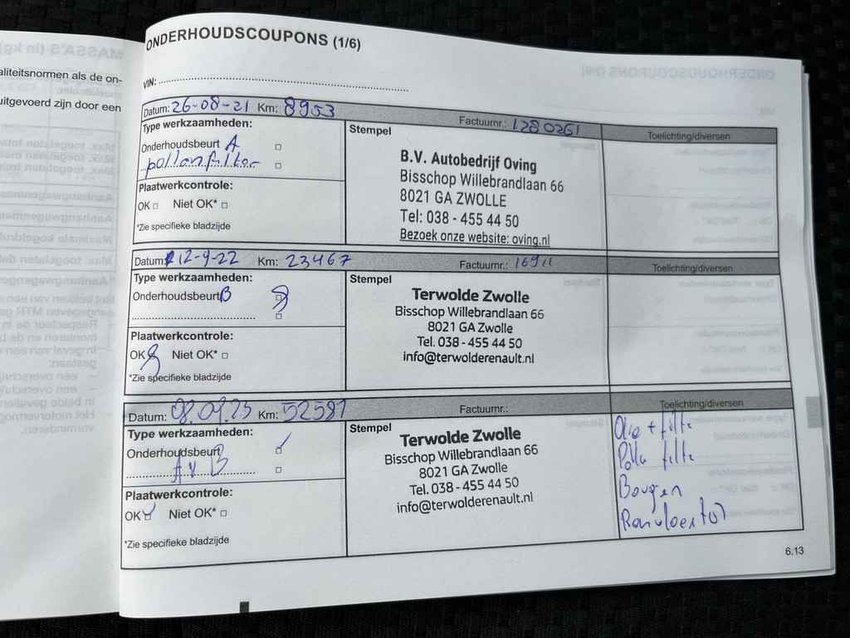 aliteitsnormen als de on-
uitgevoerd zijn door een
ONDERHOUDSCOUPONS (1/6)
VIN:
Datum: 26-08-21 Km: 8953 Factuurnr.: 1280261
Type werkzaamheden:
Onderhoudsbeurt A
pollenfilter
Plaatwerkcontrole:
OK Niet OK*
*Zie specifieke bladzijde
Stempel
B.V. Autobedrijf Oving
Bisschop Willebrandlaan 66
8021 GA ZWOLLE
Tel: 038 - 455 44 50
Bezoek onze website: oving.nl
Toelichting/diversen
Datum: 12-9-22 Km: 23467 Factuurnr.:
Type werkzaamheden:
Onderhoudsbeurt B
Plaatwerkcontrole:
OK Niet OK*
*Zie specifieke bladzijde
Stempel
Terwolde Zwolle
Bisschop Willebrandlaan 66
8021 GA Zwolle
Tel. 038 - 455 44 50
info@terwolderenault.nl
Toelichting/diversen
Datum: 08.09.23 Km: 52581 Factuurnr.:
Type werkzaamheden:
Onderhoudsbeurt
A v B
Plaatwerkcontrole:
OK Niet OK*
*Zie specifieke bladzijde
Stempel
Terwolde Zwolle
Bisschop Willebrandlaan 66
8021 GA Zwolle
Tel. 038 - 455 44 50
info@terwolderenault.nl
Toelichting/diversen
Olie + filte
Polle filte
Bougen
Remvloeistof
6.13